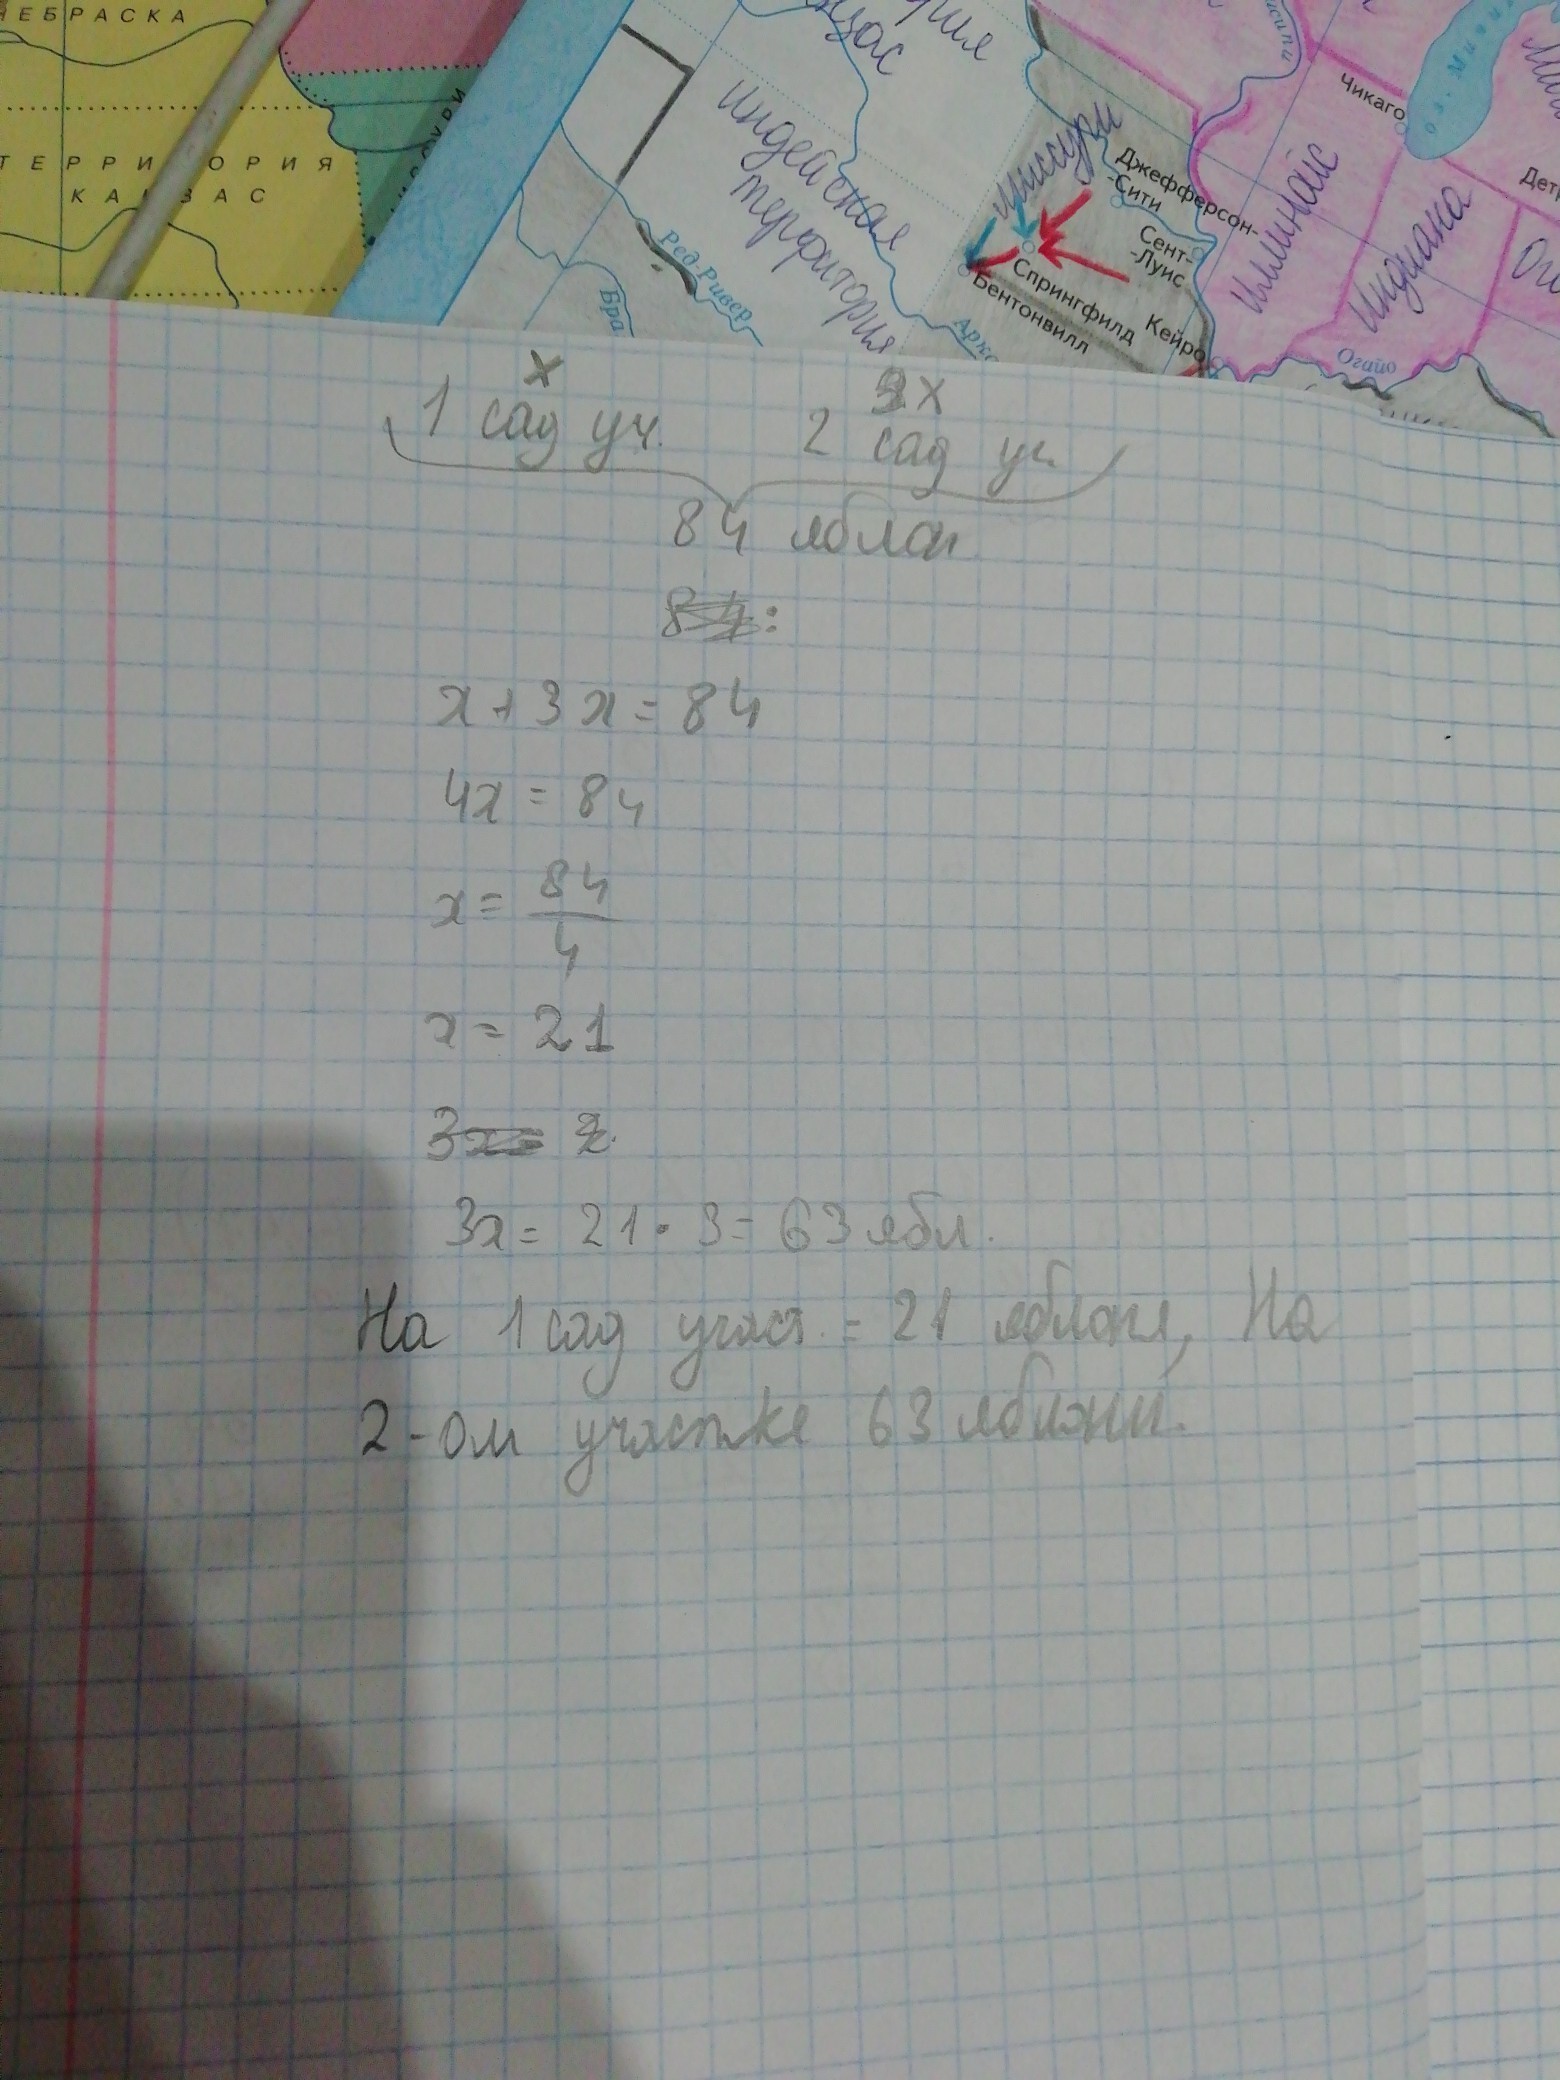 НЕБРАСКА
ТЕРРИТОРИЯ
КАНЗАС
Индейская
территория
Миссури
Джефферсон-
-Сити
Сент-
-Луис
Спрингфилд
Бентонвилл
Кейро
Чикаго
Иллинойс
Индиана
Огайо
Ред-Ривер
Бра
Арка
Дет
x
3x
1 сад уч.
2 сад уч.
84 яблон
84:
x + 3x = 84
4x = 84
x = 84/4
x = 21
3x= 2
3x = 21 · 3 = 63 ябл.
На 1 сад участ. = 21 яблоня, На
2-ом участке 63 яблони.